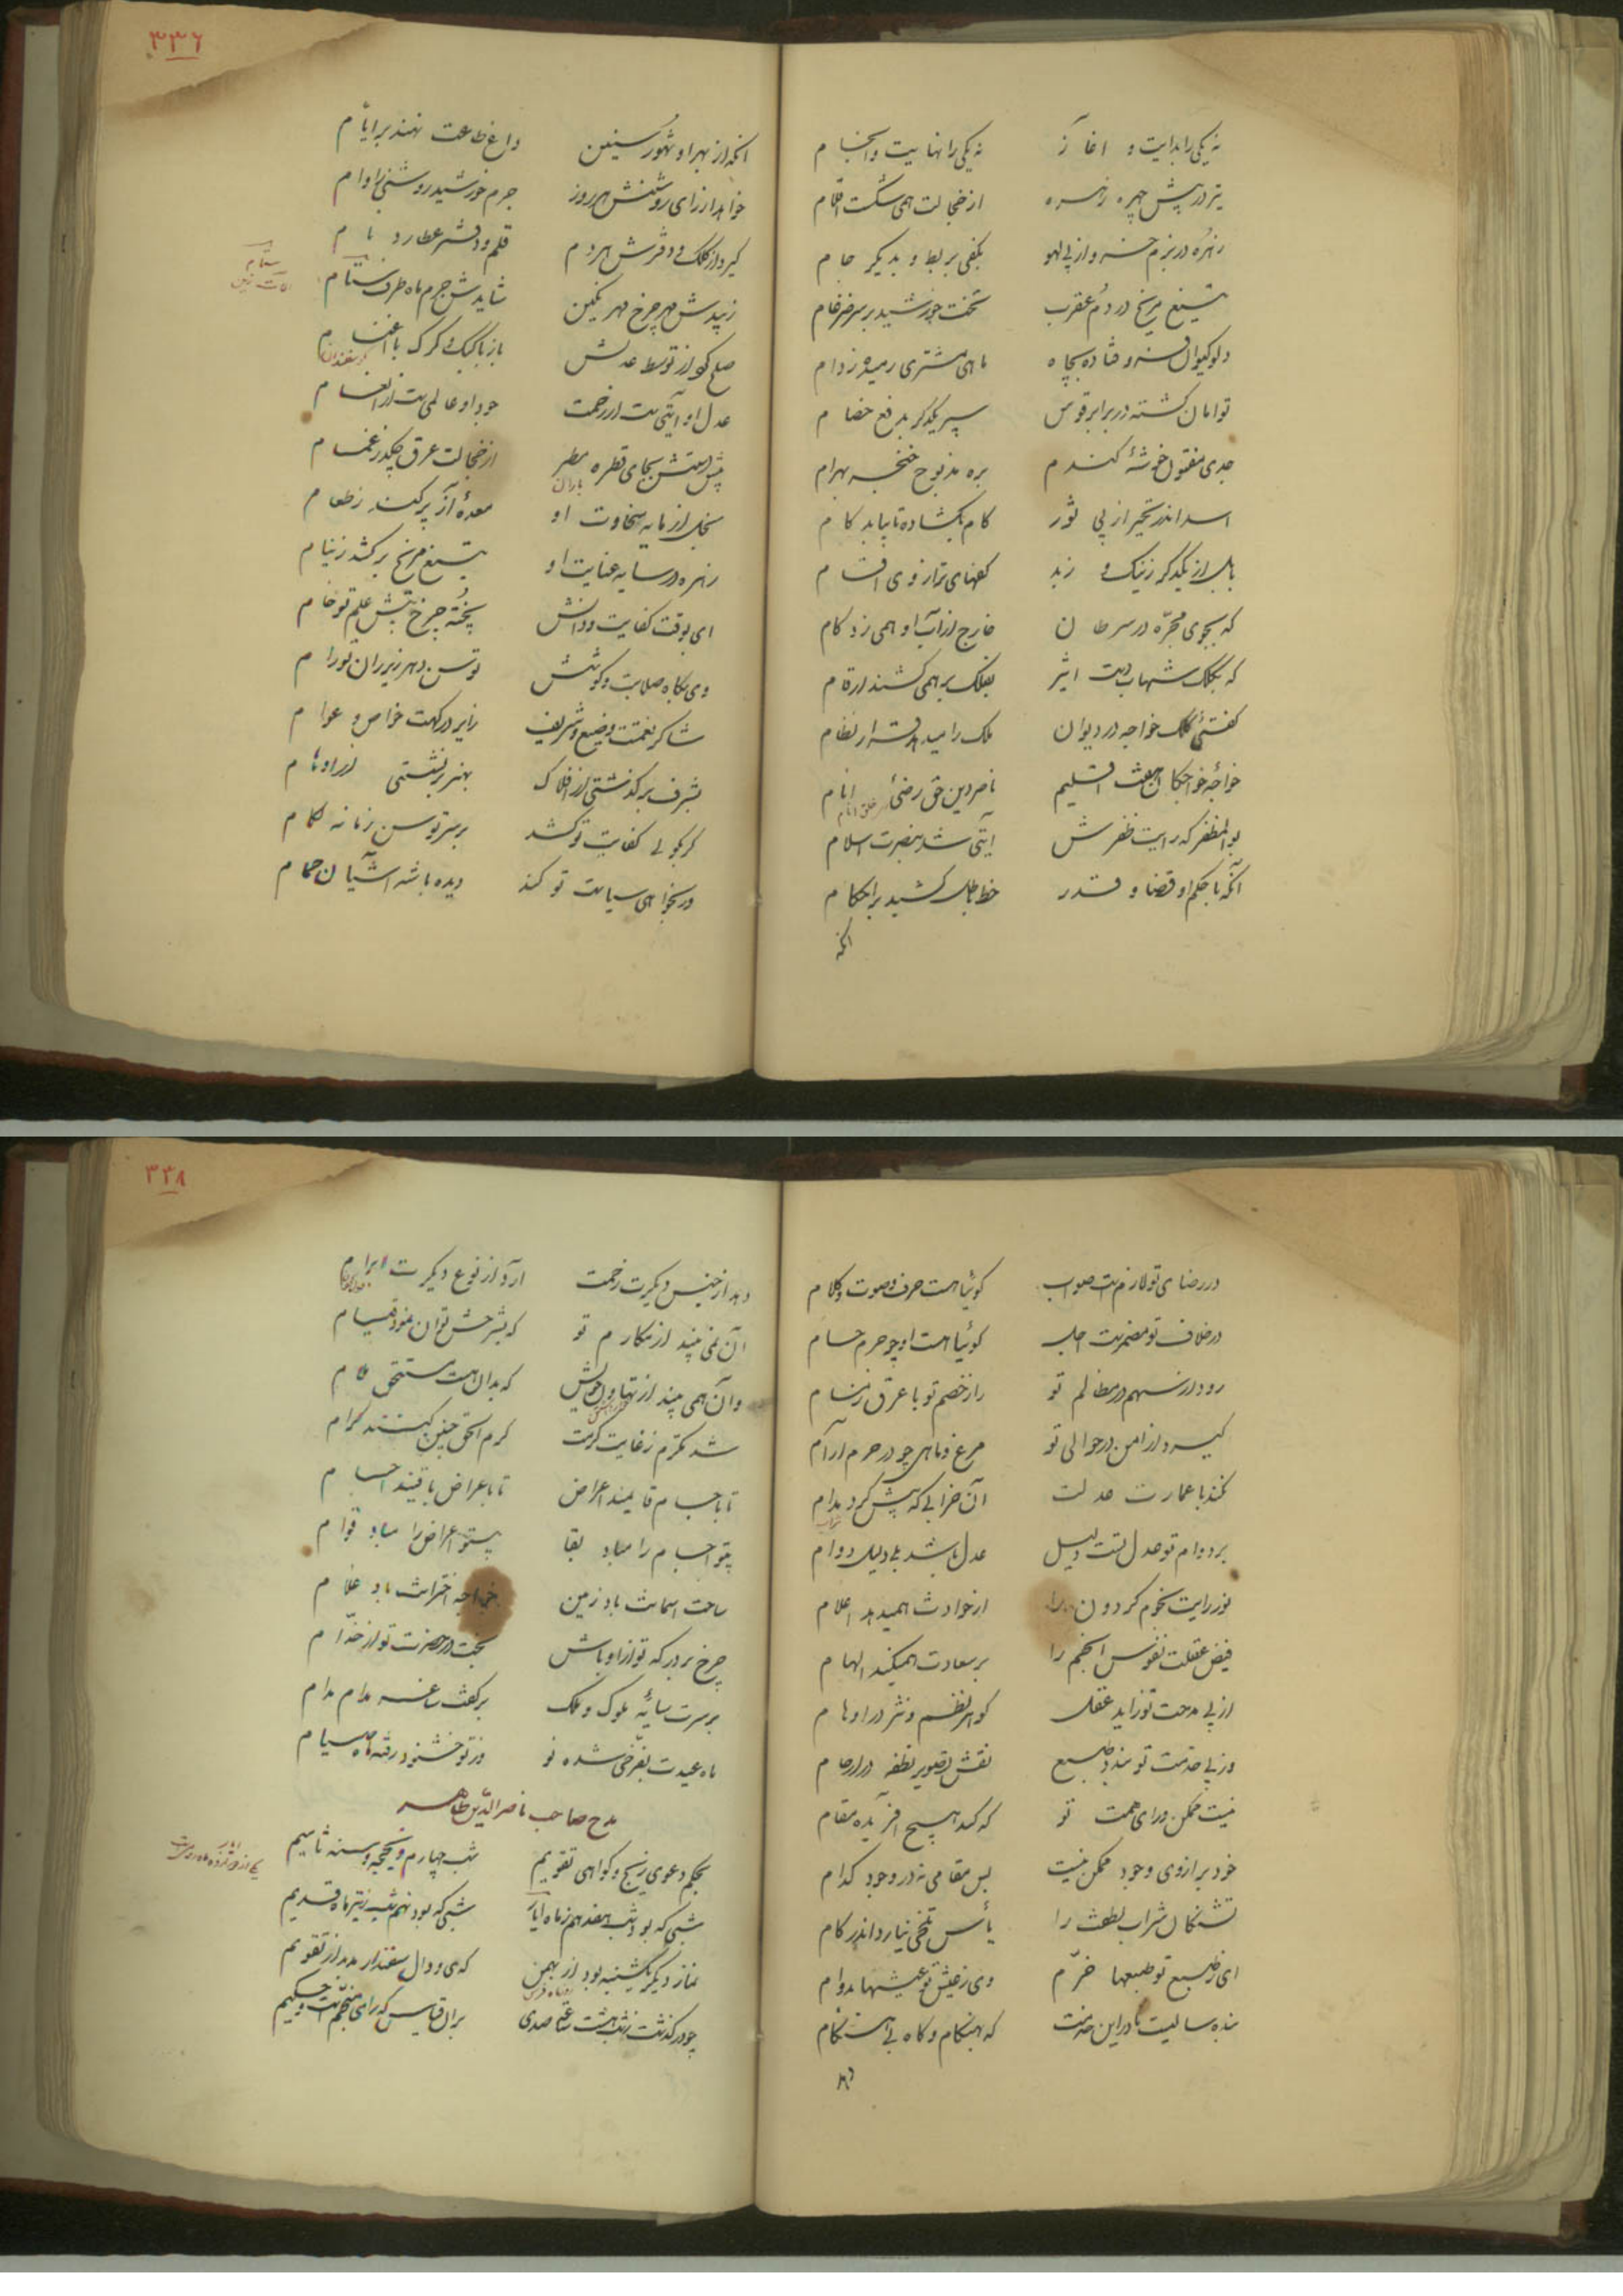 ۳۳۶
نه یکی را بدایت و آغاز نه یکی را نهایت و انجام
تیر در پیش چهره زهره از خجالت همی شکست اقلام
زهره در بزم خسرو از پی لهو بکفی بربط و بدیگر جام
تیغ مریخ در دم عقرب تخت خورشید بر سر ضرغام
دلو کیوان فتاده بچاه ماهی مشتری رمیده ز دام
توامان گشته در برابر قوس سپر یکدگر بدفع خصام
جدی مفتون خوشه گندم بره مذبوح خنجر بهرام
اسد اندر تحیر از پی ثور کام بگشاده تا بیابد کام
باطل از یکدگر ز نیک و ز بد کفهای ترازوی اقسام
که بجوی مجره در سرطان خارج از آب او همی زد گام
که بکلک شهاب دست اثیر بفلک بر همی کشید ارقام
گفتئی کلک خواجه در دیوان ملک را میدهد قرار نظام
خواجه خواجگان هفت اقلیم ناصر دین حق رضی انام
بوالمظفر که رایت ظفرش آیتی شد بنصرت اسلام
آنکه با حکم او قضا و قدر خط باطل کشید بر احکام
آنکه
آنکه از بهر او شهور و سنین داغ طاعت نهند بر ایام
خواهد از رای روشنش هر روز جرم خورشید روشنی را وام
گیرد از کلک و دفترش هر دم قلم و دفتر عطارد نام
ستام
زیبدش مهر چرخ مهر نگین شایدش جرم ماه طرف ستام
صلح کرد از توسط عدلش باز با کبک و گرگ با اغنام
گوسفندان
عدل او آیتیست از رحمت جود او عالمیست از انعام
پیش دستش بجای قطره مطر از خجالت عرق چکد ز غمام
باران
بخل از مایه سخاوت او معده آز پر کند ز طعام
زهره در سایه عنایت او تیغ مریخ برکشد ز نیام
ای بوقت کفایت و دانش پخته چرخ پیش علم تو خام
وی بگاه صلابت و کوشش توسن دهر زیر ران تو رام
شاکر نعمتت وضیع و شریف زایر درگهت خواص و عوام
بشرف برگذشتی از افلاک بهنر برنشستی از اوهام
گر بگوید کفایت تو کشد بر سر توسن زمانه لگام
ور بخواهی سیاست تو کند دیده باشه آشیان حمام
۳۳۸
در رضای تو لازمست صواب گوئیا هست حرف و صوت و کلام
در خلاف تو مضمرست اجل گوئیا هست او چو جرم حسام
رود از سهم در مظالم تو راز خصم تو با عرق ز مسام
گیرد از امن در حوالی تو مرغ و ماهی چو در حرم آرام
نکند با عمارت عدلت آن خرابی که پیش کرد مدام
شراب
بر دوام تو عدل تست دلیل عدل باشد بلی دلیل دوام
نور رایت نجوم گردون را از حوادث همیدهد اعلام
فیض عقلت نفوس انجم را بر سعادت همیکند الهام
از پی مدحت تو زاید عقل گوهر نظم و نثر در اوهام
وز پی خدمت تو بندد طبع نقش تصویر نطفه در ارحام
نیست ممکن ورای همت تو که کند هیچ آفریده مقام
خود بر ازوی وجود ممکن نیست پس مقامی نه در وجود کدام
تشنگان شراب لطفت را یأس تلخی نیارد اندر کام
ای ز طبع تو طبعها خرم وی ز عیش تو عیشها بدوام
بنده سالیست تا درین خدمت که بهنگام و گاه بی هنگام
دهد از جنس دیگرت زحمت آرد از نوع دیگرت ابرام
آن نمی بیند از مکارم تو که بشرحش توان نمود قیام
وان همی بیند از تهاون خویش که بدان هست مستحق ملام
شد مکرم ز غایت کرمت کرم الحق چنین کنند کرام
تا با جسام قایمند اعراض تا باعراض باقیند اجسام
بیتو اجسام را مباد بقا بیتو اعراض را مباد قوام
ساحت آسمانت باد زمین خواجه اخترانت باد غلام
چرخ بر درگه تو از اوباش بخت در حضرت تو از خدام
بر سرت سایه ملوک و ملک بر کفت ساغر مدام مدام
ماه عیدت بفرخی شده نو وز تو خشنود رفته ماه صیام
مدح صاحب ناصرالدین طاهر
بحکم دعوی زیج و گواهی تقویم شب چهارم ذیحجه سنه ثامیم
شبی که بود شب هفدهم ز ماه ایار شبی که بود نهم شب ز تیر ماه قدیم
نماز دیگر یکشنبه بود از بهمن که ی و دال سفندار مد از تقویم
چو در گذشت ز شب هشت ساعت رصدی بران قیاس که رای منجمست و حکیم